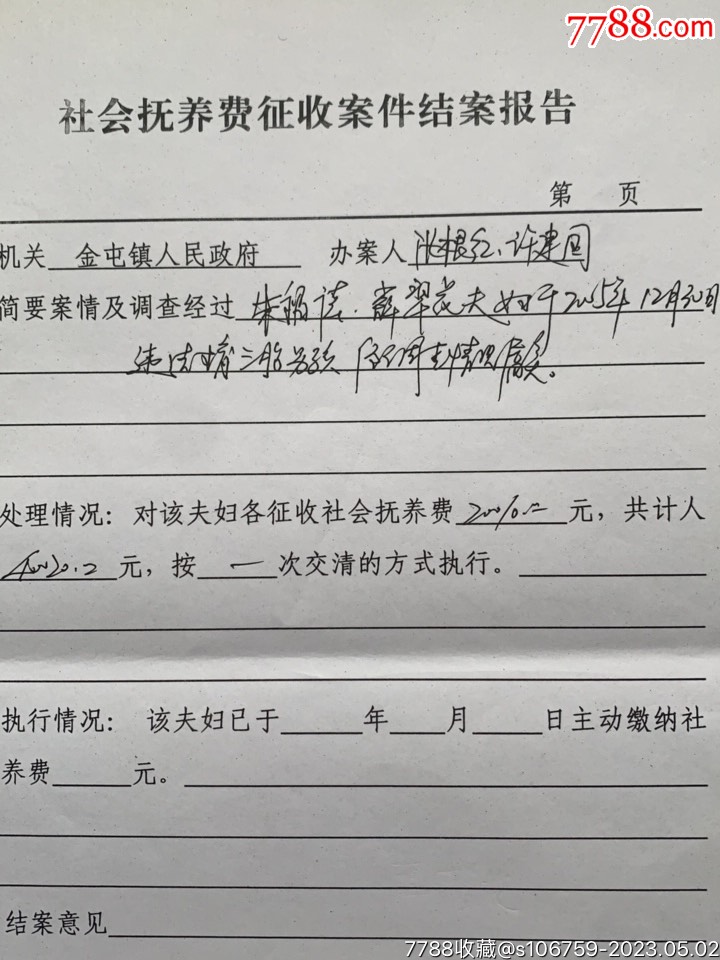 7788.com
社会抚养费征收案件结案报告
第 页
机关 金屯镇人民政府 办案人 张根红、许建国
简要案情及调查经过 朱 夫妇于2005年12月30日
违法生育三胎男孩
处理情况：对该夫妇各征收社会抚养费 元，共计人
元，按 一 次交清的方式执行。
执行情况： 该夫妇已于 年 月 日主动缴纳社
养费 元。
结案意见
7788收藏@s106759-2023.05.02